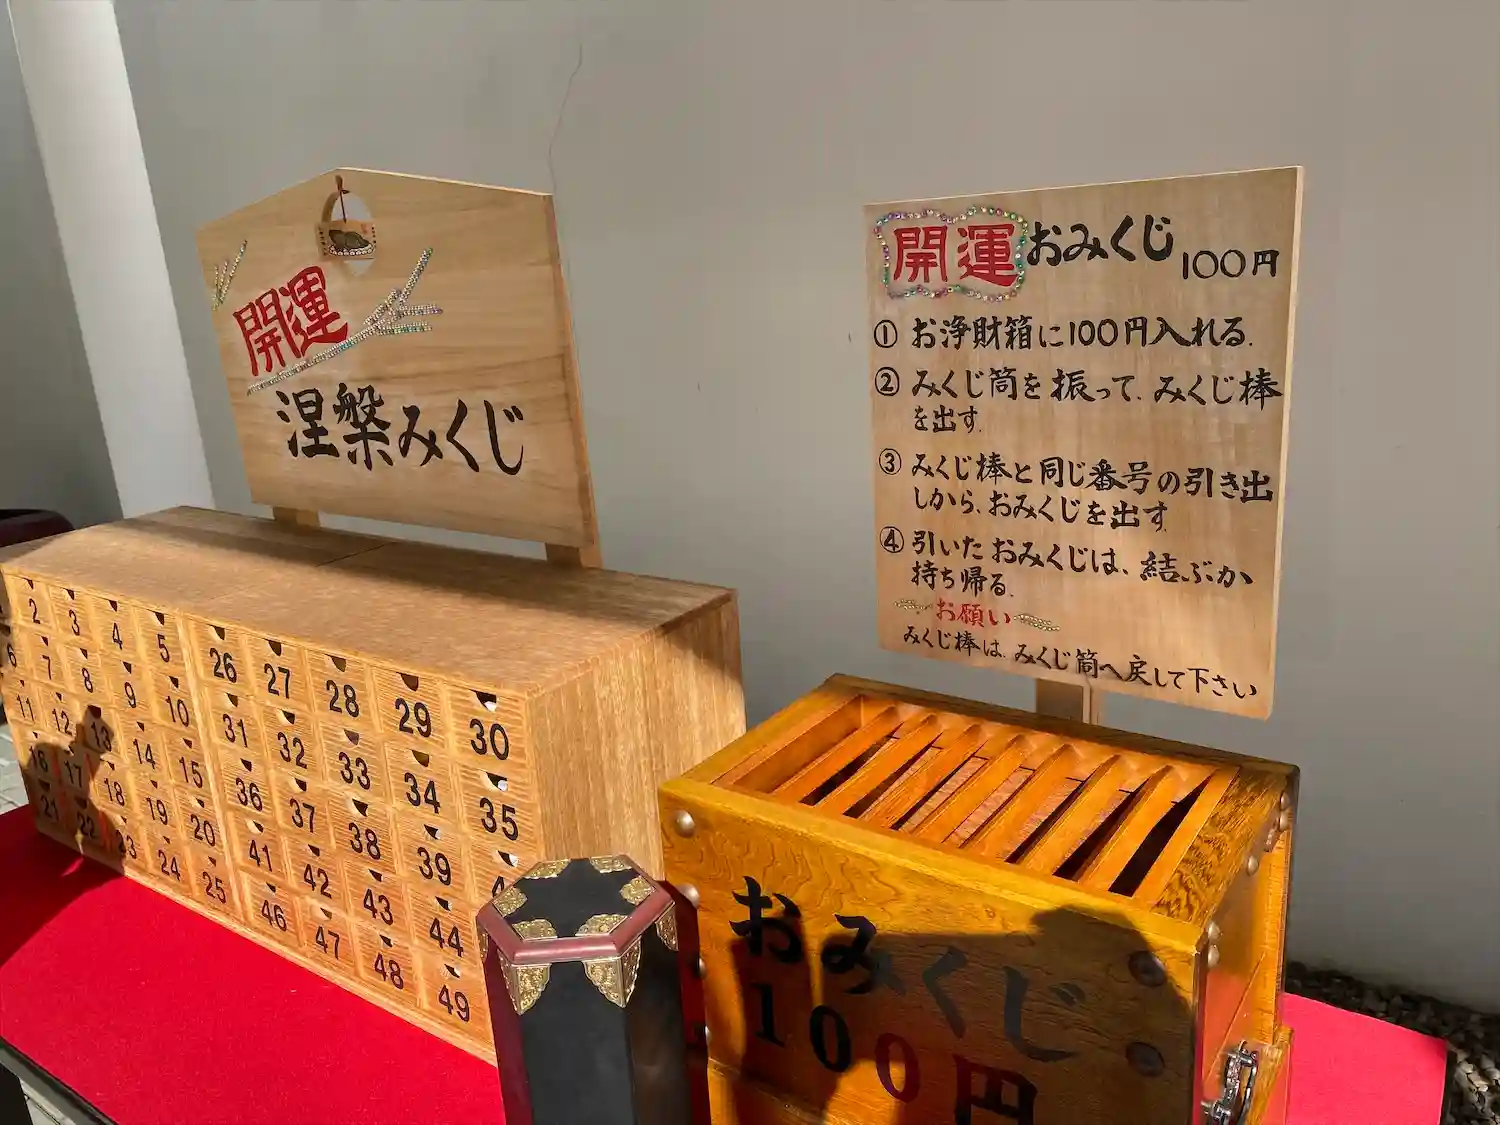 開運
涅槃みくじ
開運おみくじ 100円
① お浄財箱に100円入れる.
② みくじ筒を振って、みくじ棒
を出す.
③ みくじ棒と同じ番号の引き出
しから、おみくじを出す.
④ 引いたおみくじは、結ぶか
持ち帰る.
お願い
みくじ棒は、みくじ筒へ戻して下さい
2 3 4 5 26 27 28 29 30
6 7 8 9 10 31 32 33 34 35
11 12 13 14 15 36 37 38 39
16 17 18 19 20 41 42 43 44
21 22 23 24 25 46 47 48 49
おみくじ
100円